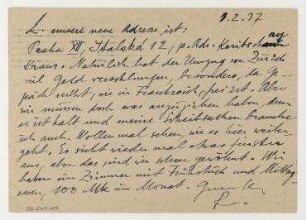 9.2.37
L. unsere neue Adresse ist:
Praha XII, Italská 12, p. Adr.
Kraus. Natürlich hat der Umzug von Zürich
viel Geld verschlungen, besonders, da Ge-
päck fehlt, wie in Frankreich, friert. Aber
wir müssen doch was anzuziehen haben, denn
es ist kalt und meine Arbeitssachen brauche
ich auch. Wollen mal sehen, wie es hier weiter
geht. Es sieht wieder mal etwas
aus, aber das sind wir schon gewöhnt. Wir
haben ein Zimmer mit Frühstück und Mittag-
essen, 100 Mk im Monat.